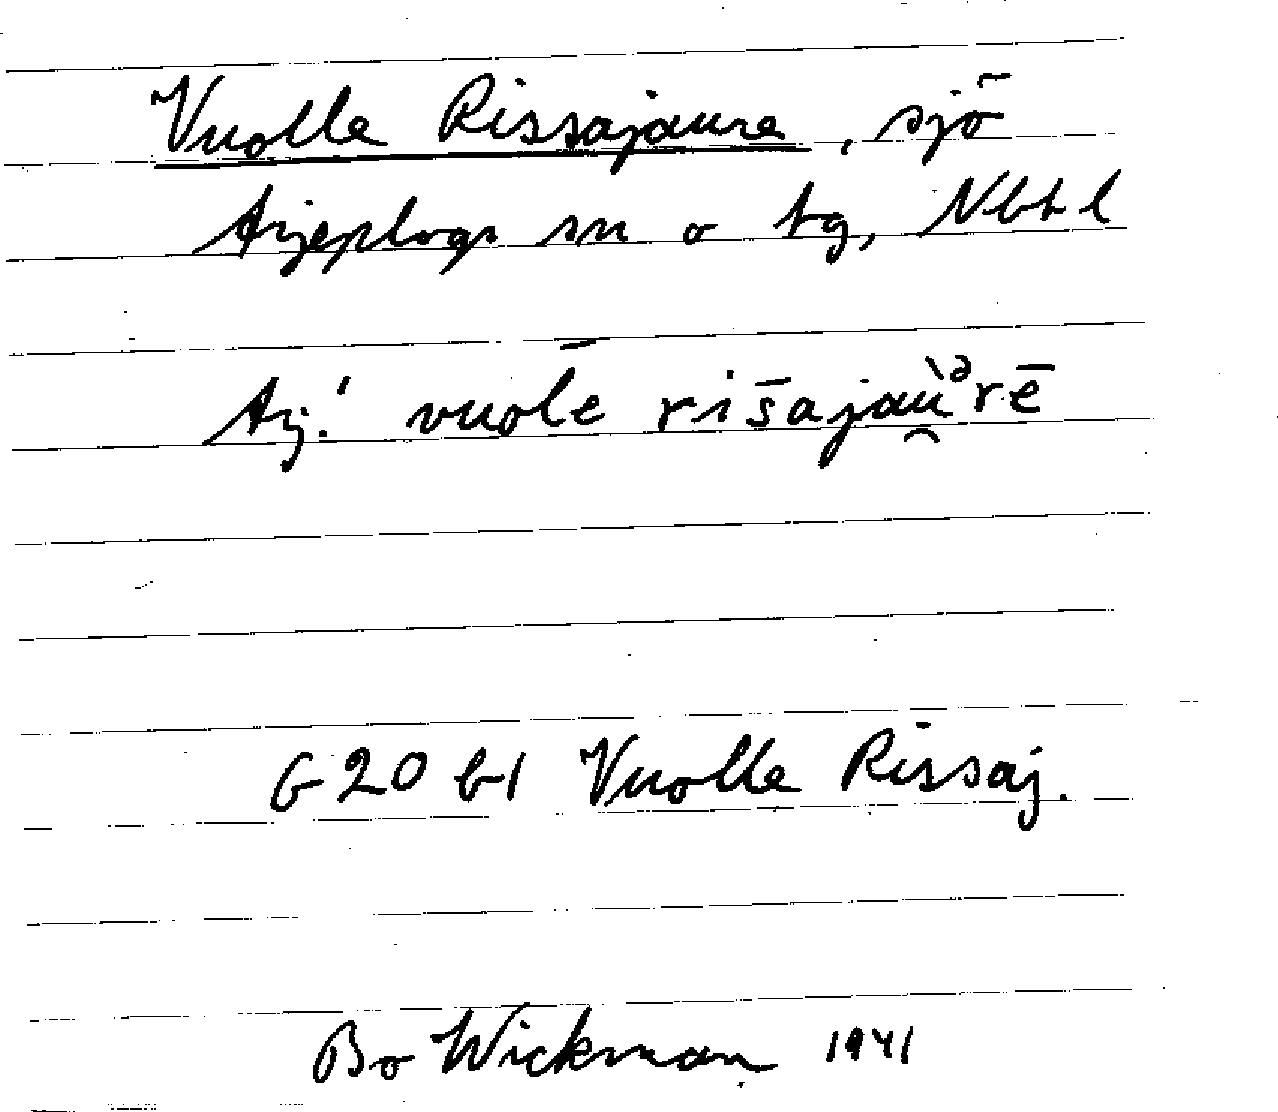 Vuolle Rissajaure, sjö
Arjeplogs sn o tg, Nbtl
Arj.' vuol̄e riš̄ajaù̯ᵊrē
G20 b1 Vuolle Rissaj.
Bo Wickman 1941